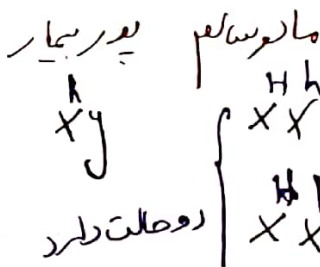 مادر سالم پدر بیمار
X^H X^h X^h y
دو حالت دارد
X^H X